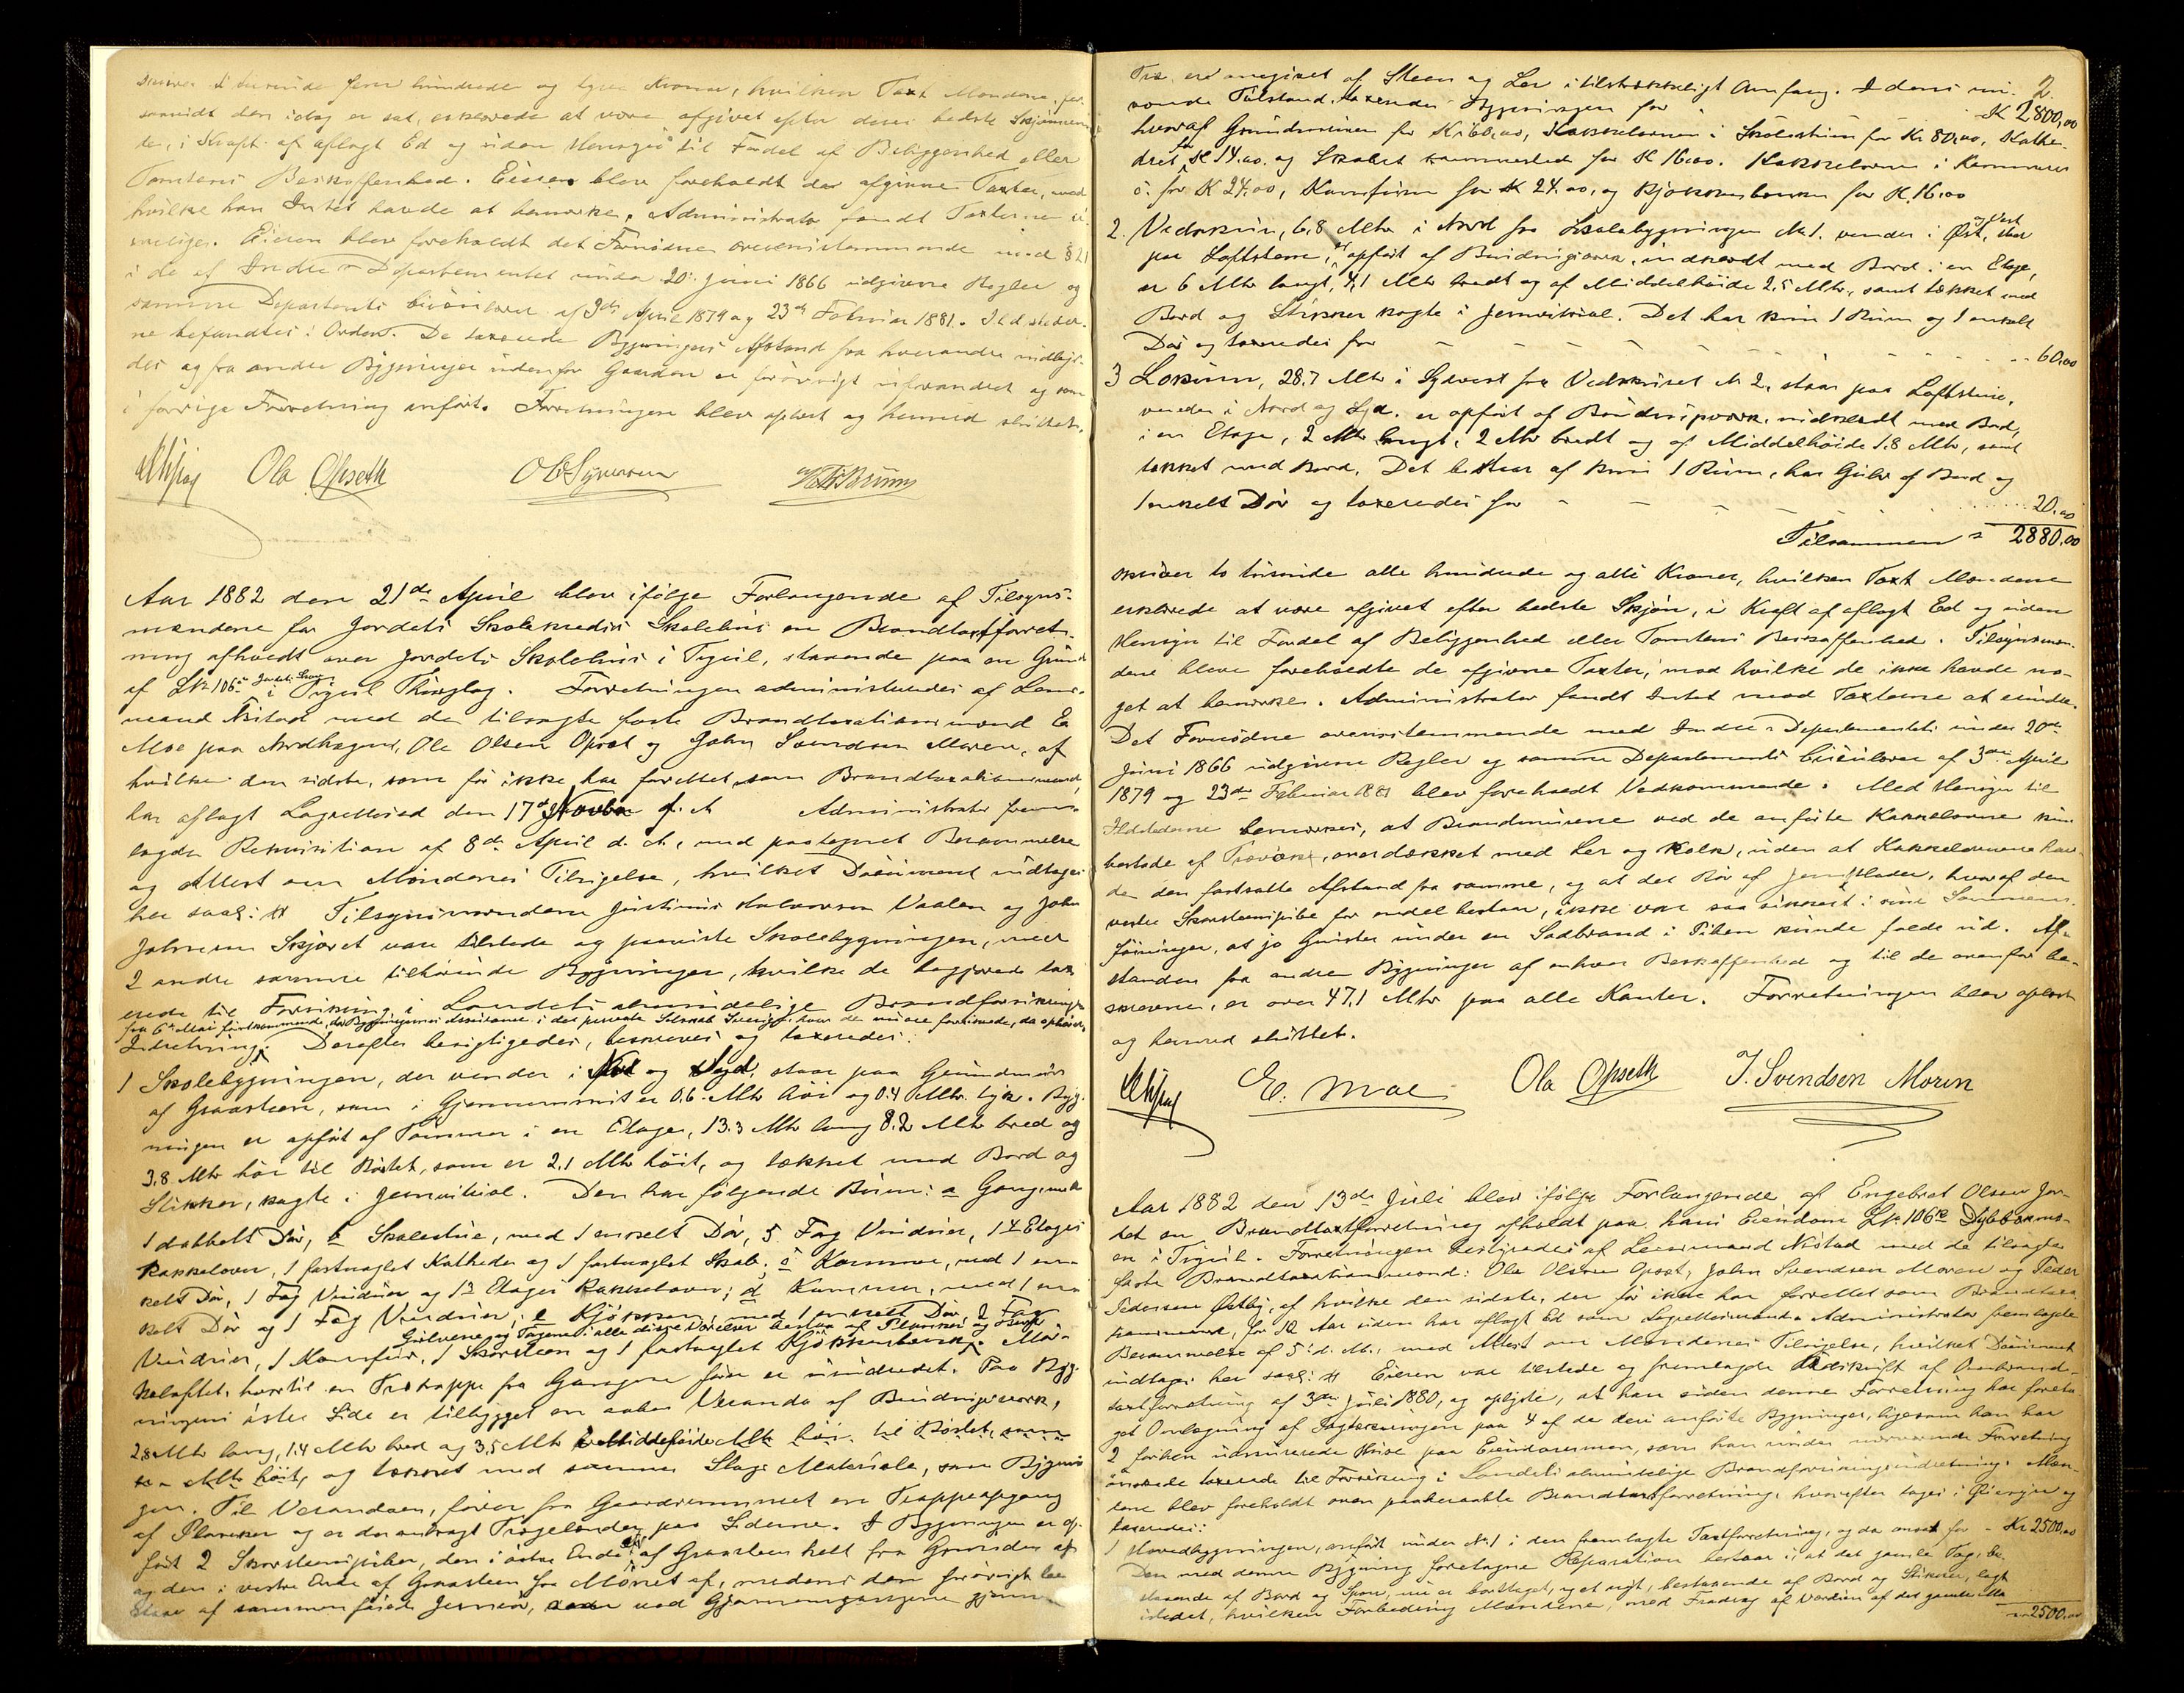 skriver: to tusinde fem hundrede og tyve Kroner, hvilken Taxt Mændene, for-
saavidt den idag er sat, erklærede at være afgivet efter deres bedste Skjønnen-
de, i Kraft af aflagt Ed og uden Hensyn til Fordel af Beliggenhed eller
Tomtens Beskaffenhed. Eieren blev foreholdt de afgivne Taxter, mod
hvilke han Intet havde at bemærke. Administrator fandt Taxterne
Eieren blev foreholdt det Fornødne overensstemmende med § 21
i de af Indre-Departementet under 20de Juni 1866 udgivne Regler og
samme Departements Circulærer af 3die April 1879 og 23de Februar 1881. Ildsteder-
ne befandtes i Orden. De taxerede Bygningers Afstand fra hverandre indbyr-
des og fra andre Bygninger udenfor Gaarden er forøvrigt uforandret og som
i forrige Forretning anført. Forretningen blev oplæst og hermed sluttet.
Ola Opseth OCSyversen
Aar 1882 den 21de April blev ifølge Forlangende af Tilsyns-
mændene for Jordets Skolekreds's Skolehus en Brandtaxtforret-
ning afholdt over Jordets Skolehus i Trysil, staaende paa en Grund
af Lbr. 106 i Trysil Thinglag. Forretningen administreredes af Lens-
mand Nistad med de tilsagte faste Brandtaxationsmænd E.
Moe paa Nordhagen, Ole Olsen Opsæt og John Svendsen Moren, af
hvilke den sidste, som før ikke har forrettet som Brandtaxationsmand,
har aflagt Lagrettesed den 17de Novbr f. A. Administrator frem-
lagde Rekvisition af 8de April d. A., med paategnet Berammelse
og Attest om Mændenes Tilsigelse, hvilket Document indtages
her saal: # Tilsynsmændene Justinus Halvorsen Vaalen og John
Johnsen Skjæret vare tilstede og paaviste Skolebygningen, med
2 andre samme tilhørende Bygninger, hvilke de begjærede tax-
erede til Forsikring i Landets almindelige Brandforsikrings-
fra 6te Mai førstkommende, da Bygningernes Assurance i det private Selskab Sverige, hvor de nu ere forsikrede, da ophører.
Indretning. Derefter besigtigedes, beskreves og taxeredes:
1 Skolebygningen, der vender i Nord og Syd, staar paa Grundmur
af Graasteen, som i Gjennemsnit er 0.6 Mtr. høi og 0.4 Mtr. tyk. Byg-
ningen er opført af Tømmer i en Etage, 13.3 Mtr. lang 8.2 Mtr bred og
3.8 Mtr høi til Røstet, som er 2.1 Mtr høit, og tækket med Bord og
Stikker, kogte i Jernvitriol. Den har følgende Rum: a Gang, med
1 dobbelt Dør, b Skolestue, med 1 enkelt Dør, 5 Fag Vinduer, 1 4 Etages
Kakkelovn, 1 fastnaglet Katheder og 1 fastnaglet Skab; c Kammer, med 1 en-
kelt Dør, 1 Fag Vinduer og 1 2 Etages Kakkelovn; d Kammer, med 1 en-
kelt Dør og 1 Fag Vinduer; e Kjøkken, med 1 enkelt Dør, 2 Fag
Gulvene og Tagene i alle disse Værelser bestaa af Planker og Bord
Vinduer, 1 Komfur, 1 Skorsteen og 1 fastnaglet Kjøkkenbænk. Mør-
keloftet, hvortil en Trætrappe fra Gangen fører er uindredet. Paa Byg-
ningens østre Side er tilbygget en aaben Veranda af Bindingsværk,
2.8 Mtr lang, 1.4 Mtr bred og 3.5 Mtr i Middelhøide Mtr høi til Røstet, som
er Mtr høit, og tækket med samme Slags Materiale, som Bygnin-
gen. Til Verandaen, fører fra Gaardsrummet en Trappeopgang
af Planker og er der anbragt Trægelænder paa Siderne. I Bygningen er op-
ført 2 Skorsteenspiber, den i østre Ende af Graasteen helt fra Grunden af
og den i vestre Ende af Graasteen fra Mønet af, medens den forøvrigt be-
staar af sammenføiede Jernrør, ved Gjennemgangene gjennem
2.
Træ, er omgivet af Steen og Ler i tilstrækkeligt Omfang. I dens nu-
værende Tilstand taxeredes Bygningen for K 2800,00
hvoraf Grundmuren for K. 160,00, Kakkelovnen i Skolestuen for Kr 80.00, Kathe-
dret for K 14.00. og Skabet sammesteds for K 16.00. Kakkelovnen i Kammeret
c. for K 24.00, Komfuren for K 24.00, og Kjøkkenbænken for K. 16.00
2. Vedskuur, 6,8 Mtr i Nord fra Skolebygningen No 1. vender i Øst og Vest, staar
paa Loftsteene, er opført af Bindingsværk, indklædt med Bord i en Etage,
er 6 Mtr langt, 4,1 Mtr bredt og af Middelhøide 2.5 Mtr., samt tækket med
Bord og Stikker kogte i Jernvitriol. Det har kun 1 Rum og 1 enkelt
Dør og taxeredes for - - - - - - - 60,00
3 Lokum, 28.7 Mtr i Sydvest fra Vedskuret No 2. staar paa Loftstene,
vender i Nord og Syd. er opført af Bindingsværk, indklædt med Bord,
i en Etage, 2 Mtr langt, 2 Mtr bredt og af Middelhøide 1.8 Mtr, samt
tækket med Bord. Det bestaar af kun 1 Rum, har Gulv af Bord og
1 enkelt Dør og taxeredes for - - - - - 20.00
Tilsammen = 2880.00
skriver to tusinde otte hundrede og otti Kroner, hvilken Taxt Mændene
erklærede at være afgivet efter bedste Skjøn, i Kraft af aflagt Ed og uden
Hensyn til Fordel af Beliggenhed eller Tomtens Beskaffenhed. Tilsynsmæn-
dene bleve foreholdte de afgivne Taxter, mod hvilke de ikke havde no-
get at bemærke. Administrator fandt Intet mod Taxterne at erindre.
Det Fornødne overensstemmende med Indre-Departementets under 20de
Juni 1866 udgivne Regler og samme Departements Circulærer af 3die April
1879 og 23de Februar 1881 blev foreholdt Vedkommende. Med Hensyn til
Ildstederne bemærkes, at Brandmurene ved de anførte Kakkelovne kun
bestode af Træværk, overdækket med Ler og Kalk, uden at Kakkelovnene hav-
de den fortsatte Afstand fra samme, og at det Rør af Jernplader, hvoraf den
vestre Skorsteenspibe for endel bestaar, ikke var saa sikkert i sine Sammen-
føininger, at jo Gnister under en Sodbrand i Piben kunde falde ud. Af-
standen fra andre Bygninger af enhver Beskaffenhed og til de ovenfor be-
skrevne, er over 47.1 Mtr paa alle Kanter. Forretningen blev oplæst
og hermed sluttet.
E. Moe Ola Opseth J. Svendsen Moren
Aar 1882 den 13de Juli blev ifølge Forlangende af Engebret Olsen Jor-
det en Brandtaxtforretning afholdt paa hans Eiendom Lbr. 106
i Trysil. Forretningen bestyredes af Lensmand Nistad med de tilsagte
faste Brandtaxationsmænd: Ole Olsen Opsæt, John Svendsen Moren og Peder
Pedersen Østby, af hvilke den sidste, der før ikke har forrettet som Brandtaxa-
tionsmand, for 12 Aar siden har aflagt Ed som Lagrettesmand. Administrator fremlagde
Berammelse af 5 d. M., med Attest om Mændenes Tilsigelse, hvilket Document
indtages her saal: # Eieren var tilstede og fremlagde Udskrift af Ombrand-
taxtforretning af 3die Juli 1880, og oplyste, at han siden denne Forretning har foreta-
get Omlægning af Tagtækningen paa 4 af de deri anførte Bygninger, ligesom han har
2 forhen uassurerede Huse paa Eiendommen, som han under nærværende Forretning
ønskede taxerede til Forsikring i Landets almindelige Brandforsikringsindretning. Mæn-
dene blev foreholdt oven paaberaabte Brandtaxtforretning, hvorefter toges i Øiesyn og
taxeredes:
1 Hovedbygningen, anført under No 1 i den fremlagte Taxtforretning, og da ansat for - Kr 2500,00
Den med denne Bygning foretagne Reparation bestaar i, at det gamle Tag, be-
staaende af Bord og Spon, nu er borttaget, og et nyt, bestaaende af Bord og Stikker, lagt
istedet, hvilken Forbedring Mændene, med Fradrag af Værdien af det gamle
2500.00